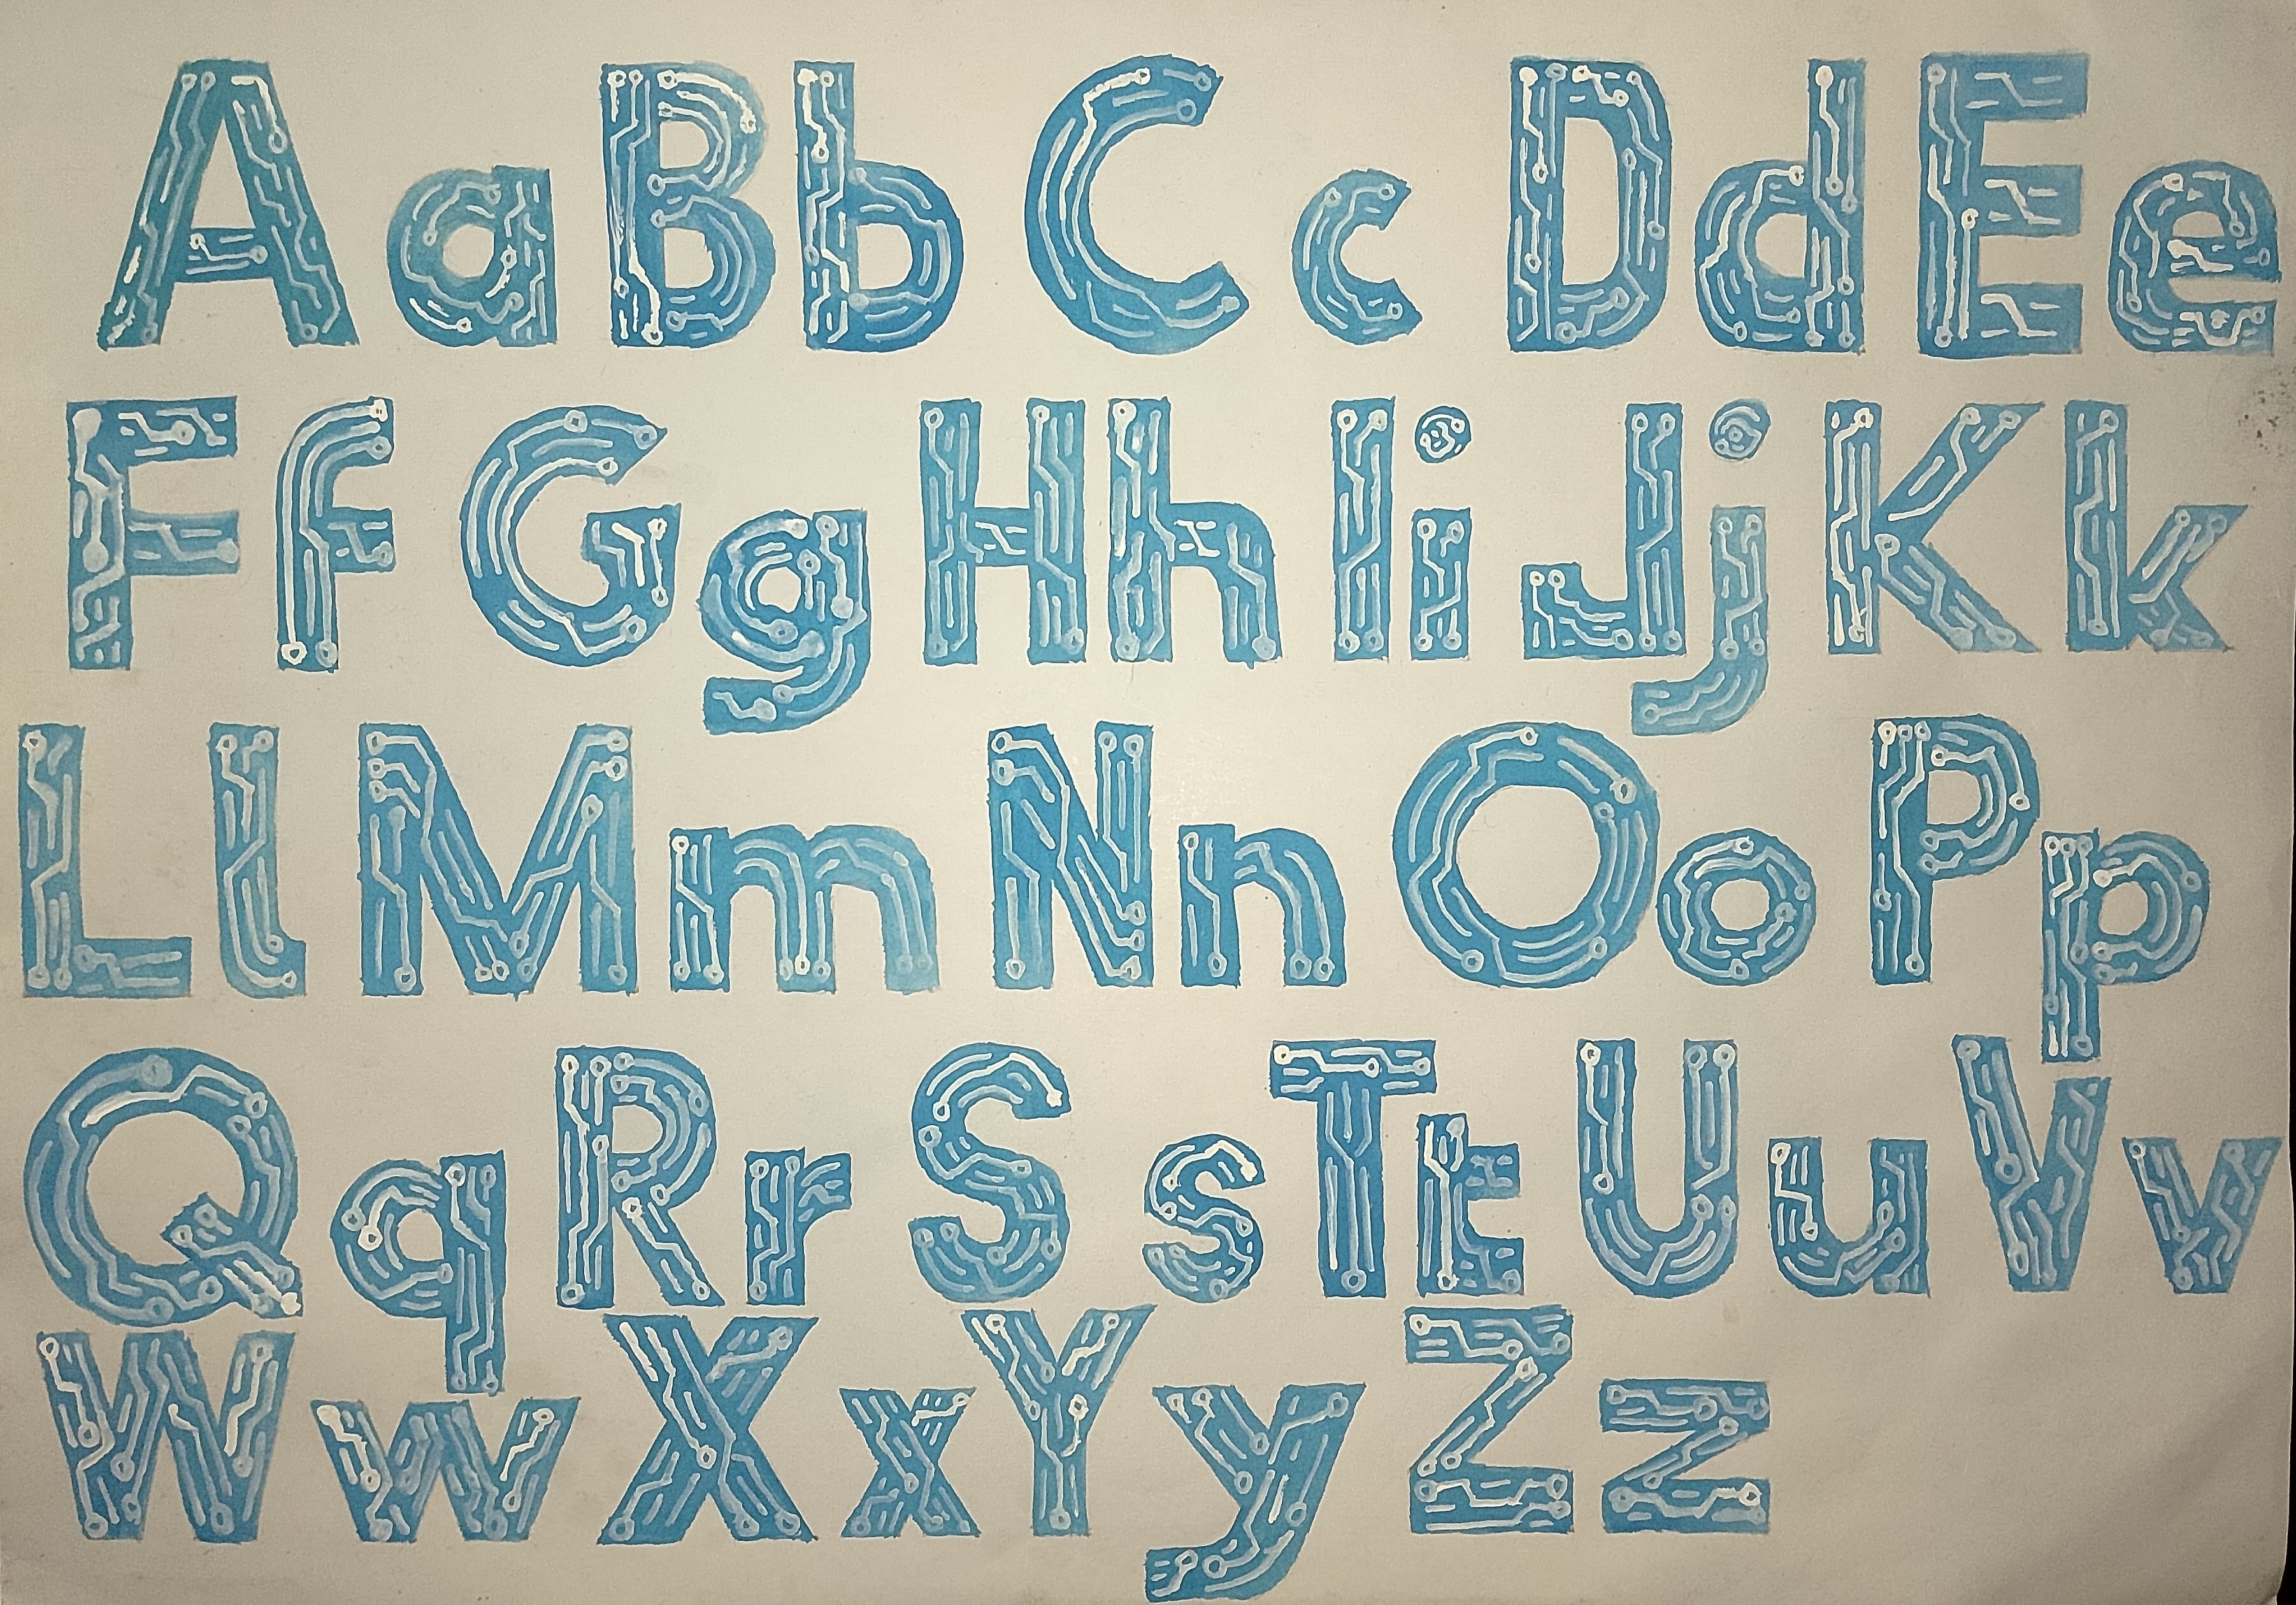 A a B b C c D d E e
F f G g H h I i J j K k
L l M m N n O o P p
Q q R r S s T t U u V v
W w X x Y y Z z